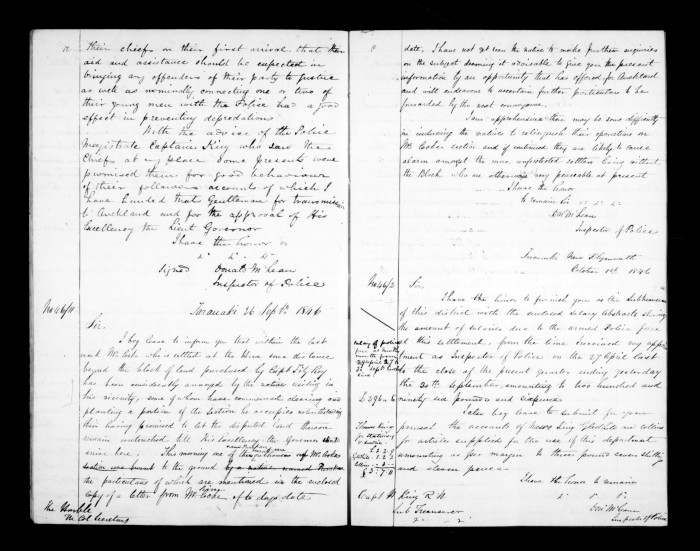 their chiefs on their first arrival that their
aid and assistance should be expected in
bringing any offenders of their party to justice
as well as nominally connecting one or two of
their young men with the Police had a good
effect in preventing depredations
With the advice of the Police
Magistrate Captain King who saw the
Chiefs at my place some presents were
promised them for good behaviour
of their followers accounts of which I
have handed that Gentleman for transmission
to Auckland and for the approval of His
Excellency the Lieut Governor
I have the honor
Signed Donald McLean
Inspector of Police
No 46/11
Taranaki 26 Septr 1846
Sir,
I beg leave to inform you that within the last
week Mr Cooke who is settled at the Hua some distance
beyond the block of land purchased by Capt Fitz Roy
has been considerably annoyed by the natives residing in
his vicinity, some of whom have commenced clearing and
planting a portion of the section he occupies notwithstanding
their having promised to let the disputed land thereon
remain untouched till His Excellency the Governor should
arrive here. This morning one of Mr Cookes
to the ground
the particulars of which are mentioned in the enclosed
copy of a letter from Mr Cooke of to days date
The Honble
The Col Secretary
date. I have not yet seen the natives to make further enquiries
on the subject deeming it advisable to give you the present
information by an opportunity that has offered for Auckland
and will endeavour to ascertain further particulars to be
forwarded by the next conveyance.
I am apprehensive there may be some difficulty
in inducing the natives to relinquish their operations on
Mr Cookes section and if continued they are likely to cause
alarm amongst the more unprotected settlers living without
the Block who are otherwise very peaceable at present
I have the honor
to remain Sir
Don McLean
Inspector of Police
Taranaki New Plymouth
October 1st 1846
No 46/2
Sir,
I have the honor to furnish you as the Subtreasurer
of this district with the enclosed salary Abstracts shewing
the amount of salaries due to the armed Police force
of this settlement, from the time I received my appoint
ment as Inspector of Police on the 27 April last
to the close of the present quarter ending yesterday
the 30th September amounting to two hundred and
ninety six pounds and sixpence
I also beg leave to submit for your
perusal the accounts of Messrs King Gledhill and Collins
for articles supplied for the use of this department
amounting as per margin to three pounds seven shillings
and eleven pence.
I have the honor to remain
Don McLean
Inspector of Police
Salary of police
£ 296 0 6
Capt H King R.N.
Sub Treasurer